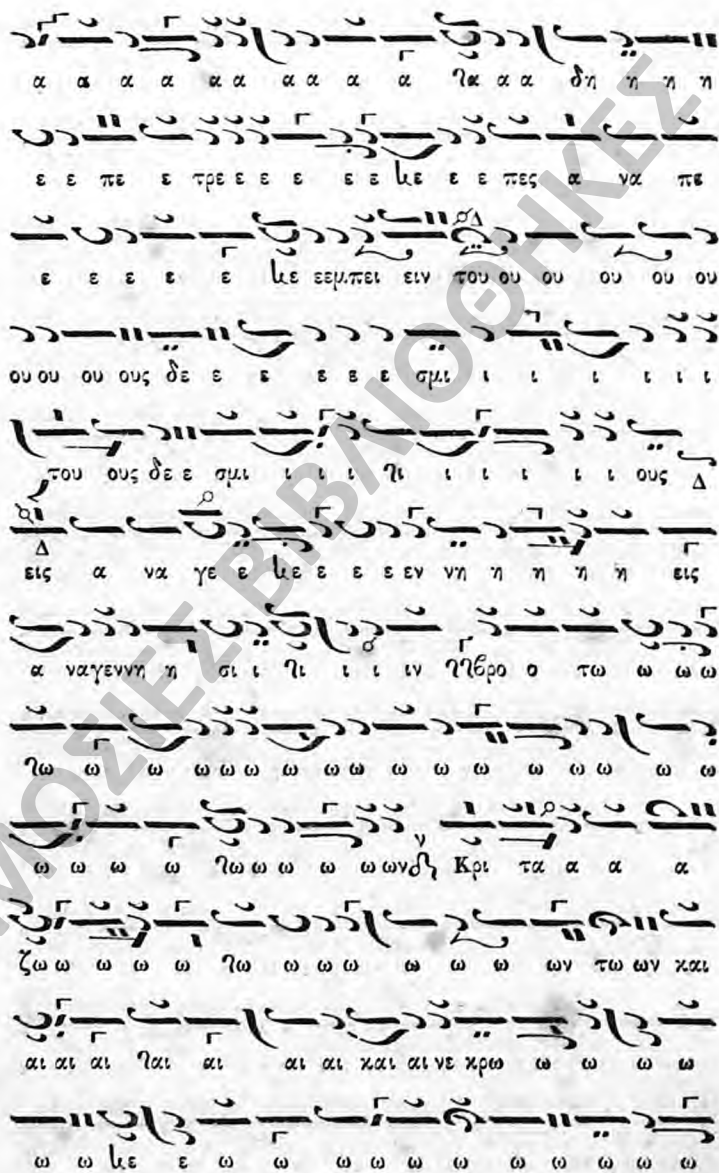 α α α α α α α α α α α α α δη η η η
ε ε πε ε τρε ε ε ε ε ε κε ε ε πες α να πε
ε ε ε ε ε κε εεμπει ειν που ου ου ου ου ου
ου ου ου ους δε ε ε ε ε ε σμι ι ι ι ι ι ι
του ους δε ε σμι ι ι ι ι ι ι ι ι ι ους Δ
εις α να γε ε κε ε ε ε εν νη η η η η εις
α ναγεννη η σι ι ι ι ι ιν βρο ο τω ω ω ω
ω ω ω ω ω ω ω ω ω ω ω ω ω ω ω ω ω
ω ω ω ω ω ω ω ω ω ων Κρι τα α α α
ζω ω ω ω ω ω ω ω ω ω ω ω ων τω ων και
αι αι αι αι αι αι αι και αι νε κρω ω ω ω ω
ω ω κε ε ω ω ω ω ω ω ω ω ω ω
ΔΗΜΟΣΙΕΣ ΒΙΒΛΙΟΘΗΚΕΣ